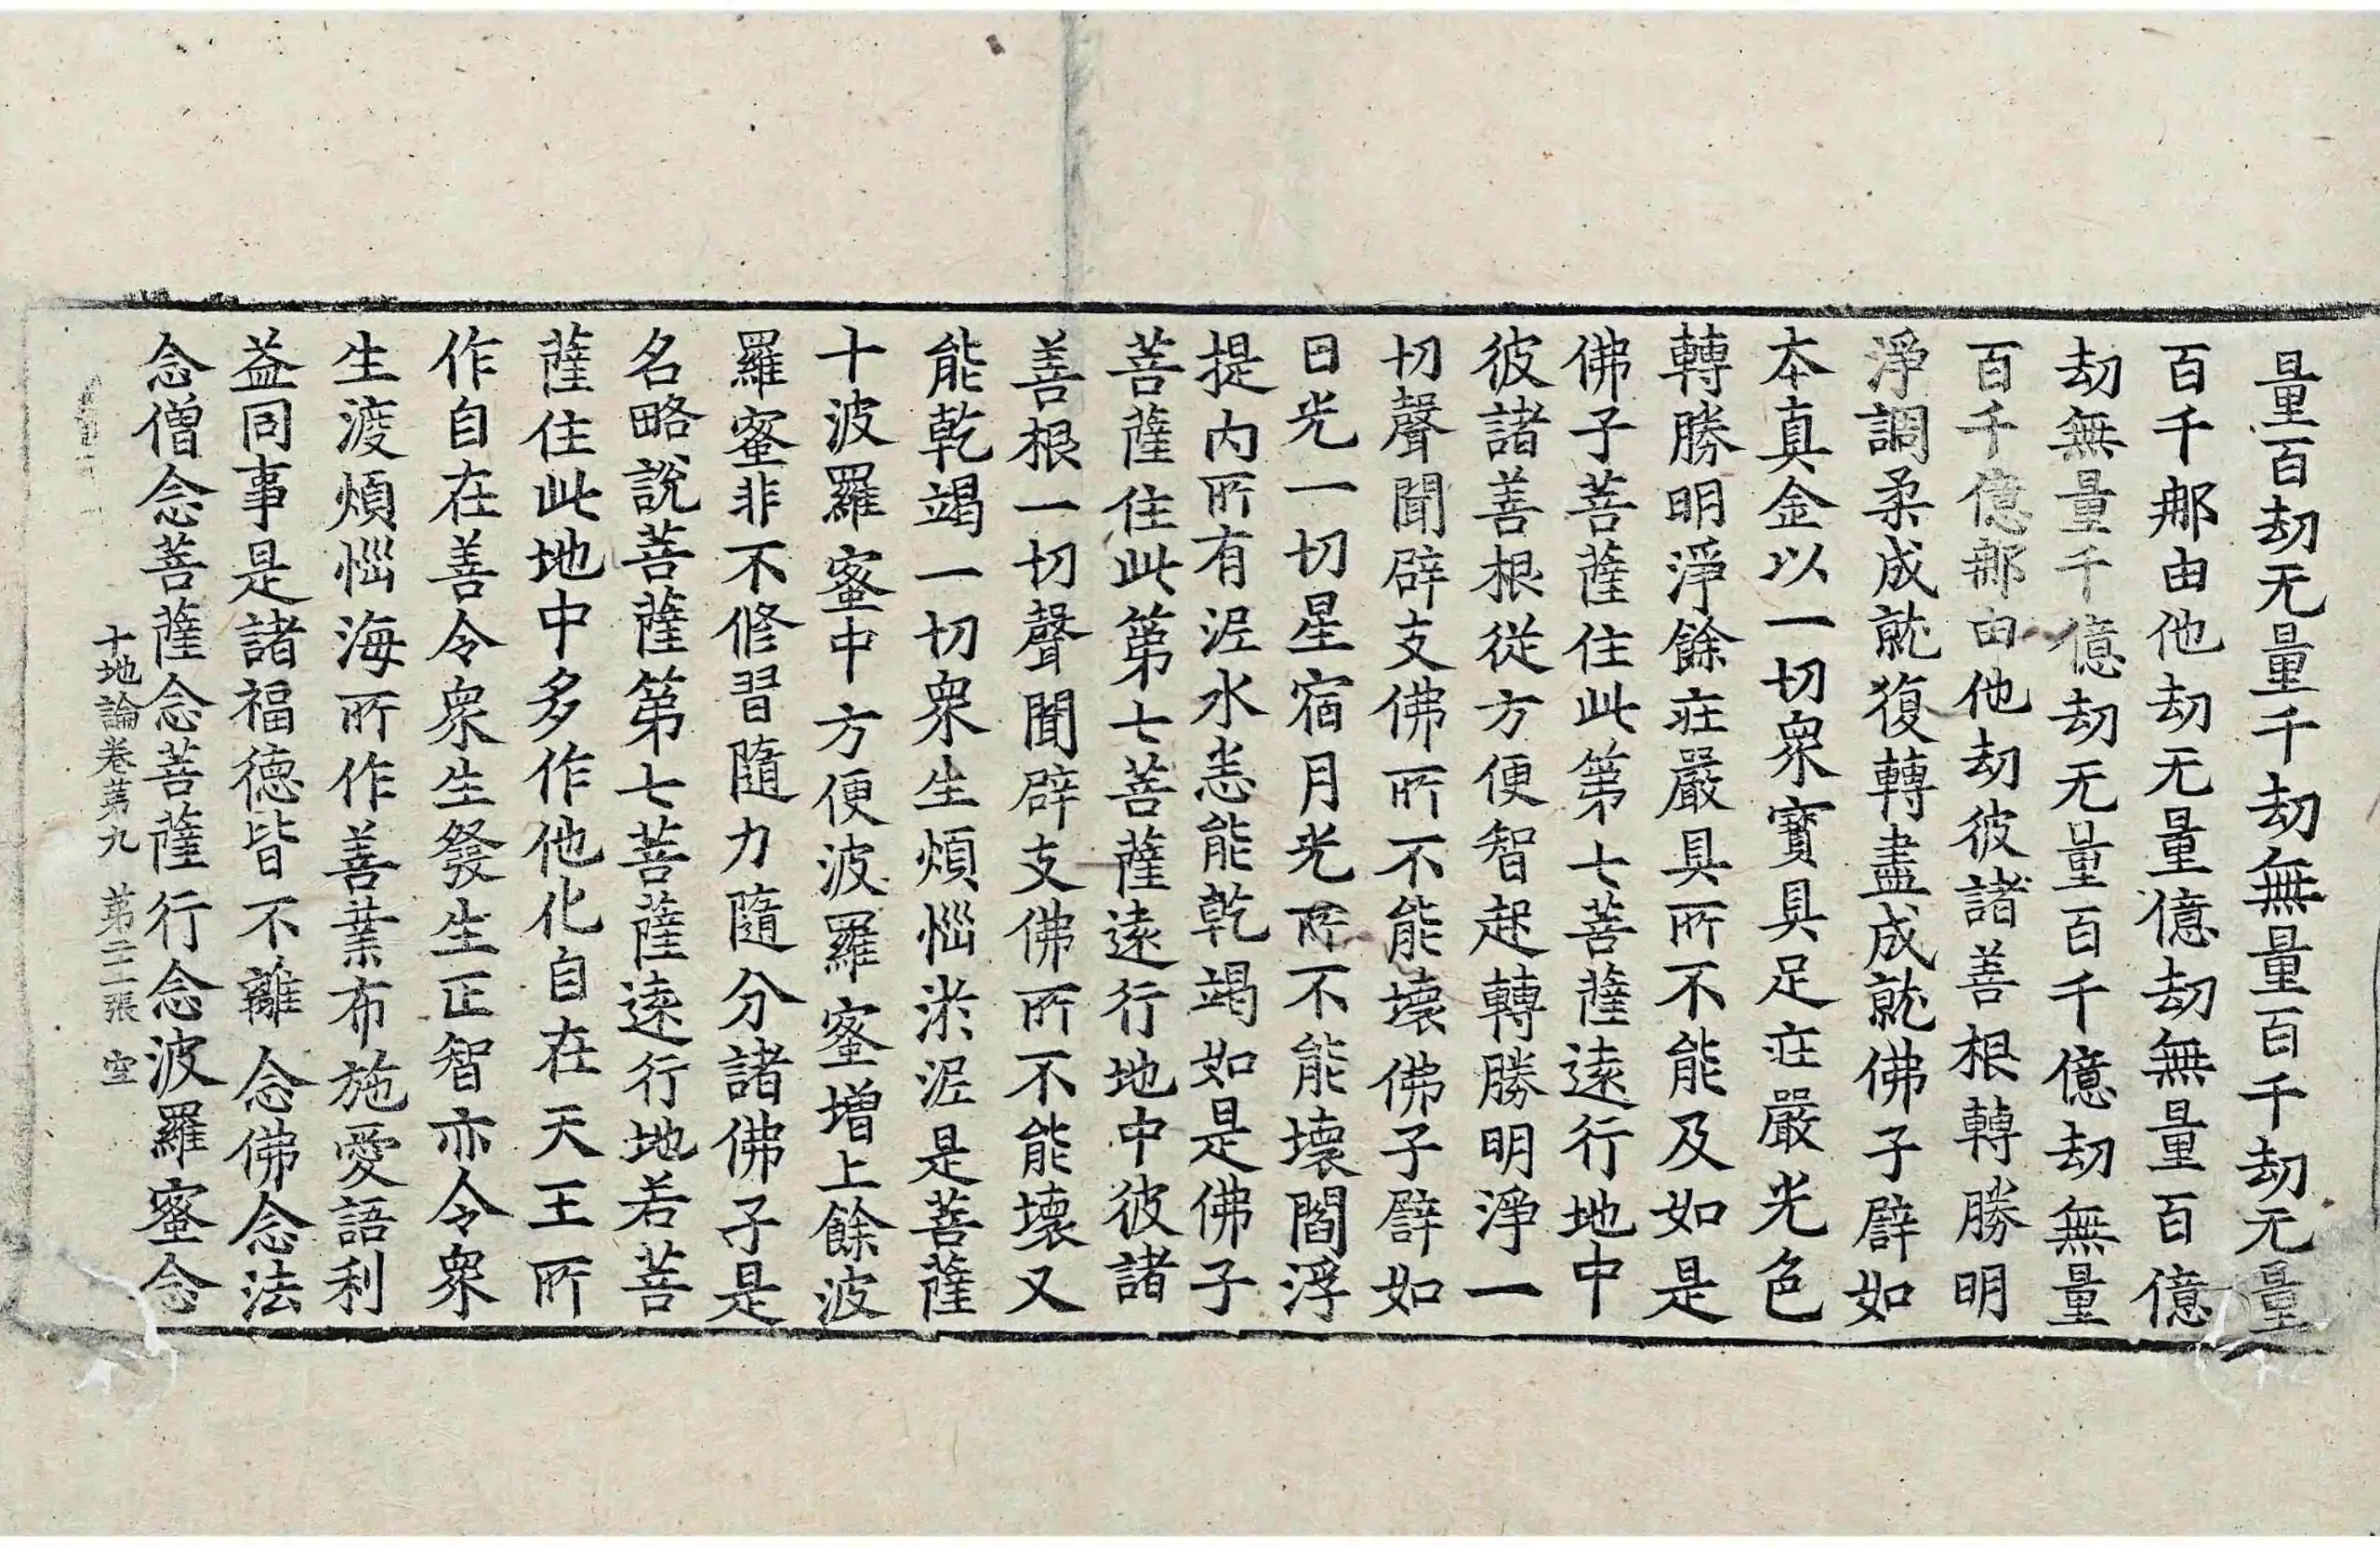 量百劫无量千劫無量百千劫无量
百千那由他劫无量億劫無量百億
劫無量千億劫无量百千億劫無量
百千億那由他劫彼諸善根轉勝明
淨調柔成就復轉盡成就佛子辟如
本真金以一切衆寶具足莊嚴光色
轉勝明淨餘莊嚴具所不能及如是
佛子菩薩住此第七菩薩遠行地中
彼諸善根從方便智起轉勝明淨一
切聲聞辟支佛所不能壞佛子辟如
日光一切星宿月光所不能壞閻浮
提內所有泥水悉能乾竭如是佛子
菩薩住此第七菩薩遠行地中彼諸
善根一切聲聞辟支佛所不能壞又
能乾竭一切衆生煩惱淤泥是菩薩
十波羅蜜中方便波羅蜜增上餘波
羅蜜非不修習隨力隨分諸佛子是
名略說菩薩第七菩薩遠行地若菩
薩住此地中多作他化自在天王所
作自在善令衆生發生正智亦令衆
生渡煩惱海所作善業布施愛語利
益同事是諸福德皆不離念佛念法
念僧念菩薩念菩薩行念波羅蜜念
十地論卷苐九 苐二二張 空